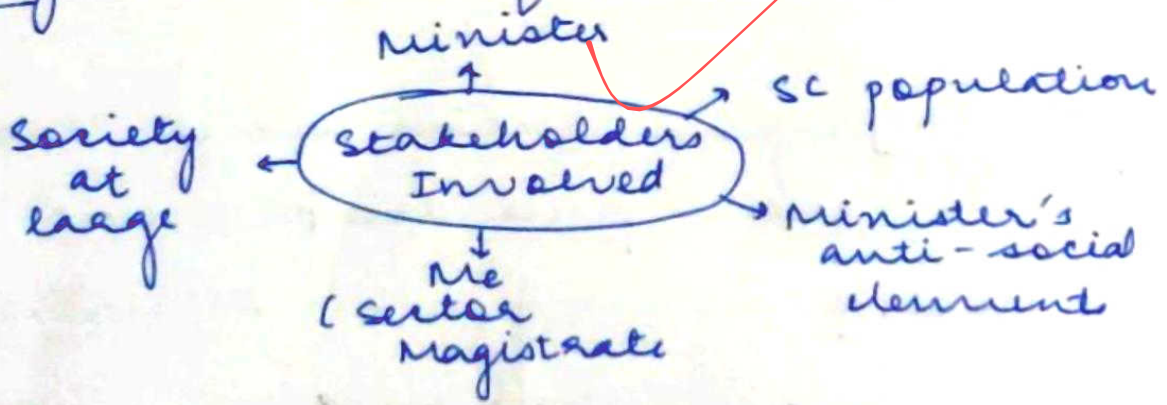 Minister
SC population
Society
at
large
Stakeholders
Involved
Minister's
anti-social
element
Me
(Sector
Magistrate